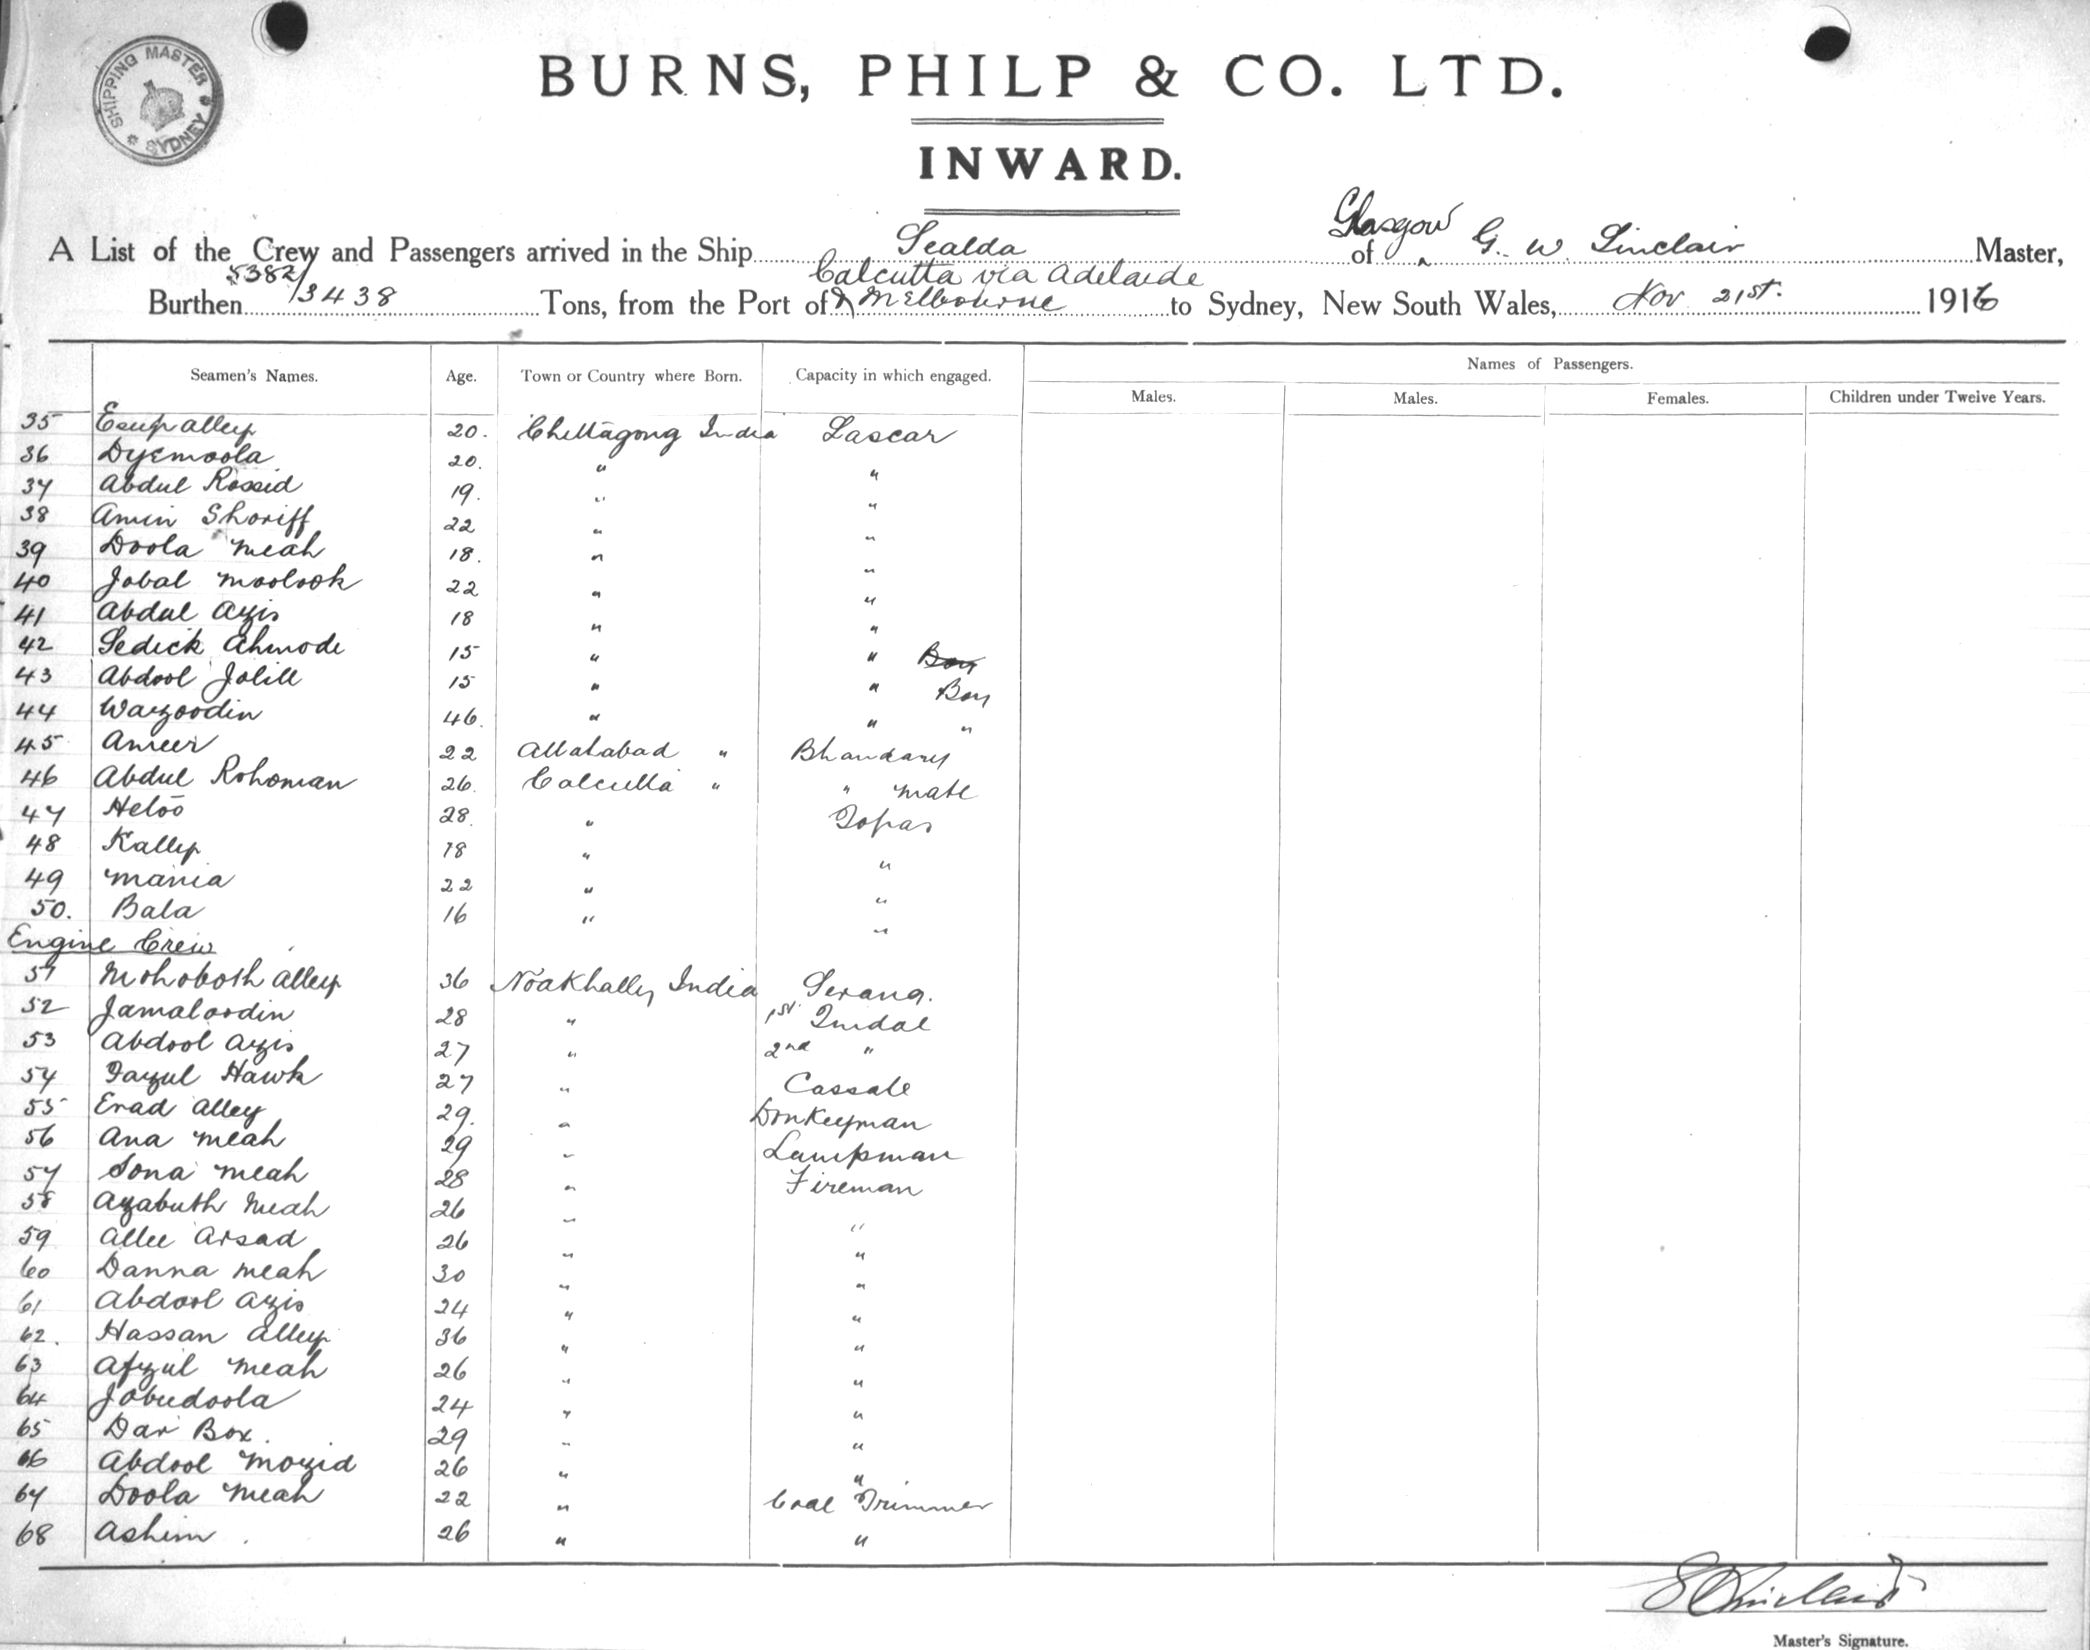 SHIPPING MASTER
SYDNEY
BURNS, PHILP & CO. LTD.
INWARD.
A List of the Crew and Passengers arrived in the Ship Sealda of Glasgow G. W. Sinclair Master,
Burthen 5382/3438 Tons, from the Port of Calcutta via Adelaide & Melbourne to Sydney, New South Wales, Nov 21st. 1916
Seamen's Names. Age. Town or Country where Born. Capacity in which engaged. Names of Passengers.
Males. Males. Females. Children under Twelve Years.
35 Esup alley 20. Chittagong India Lascar
36 Dyemoola 20. " "
37 Abdul Rossid 19. " "
38 Amin Shoriff 22 " "
39 Doola Meah 18. " "
40 Jobal Moolook 22 " "
41 Abdul Azis 18 " "
42 Sedick Ahmode 15 " " Boy
43 Abdool Jolill 15 " " Boy
44 Wazoodin 46. " " "
45 Ameer 22 Allahabad " Bhandary
46 Abdul Rohoman 26. Calcutta " " mate
47 Heloo 28. " Topas
48 Kalley 18 " "
49 Mania 22 " "
50. Bala 16 " "
Engine Crew
51 Mohoboth alley 36 Noakhally India Serang.
52 Jamaloodin 28 " 1st Tindal
53 Abdool Azis 27 " 2nd "
54 Fazul Hawk 27 " Cassale
55 Erad Alley 29. " Donkeyman
56 Ana Meah 29 " Lampman
57 Sona Meah 28 " Fireman
58 Azabuth Meah 26 " "
59 Allee Arsad 26 " "
60 Danna Meah 30 " "
61 Abdool Azis 24 " "
62. Hassan Alley 36 " "
63 Afzul Meah 26 " "
64 Jobudoola 24 " "
65 Dar Box. 29 " "
66 Abdool Mozid 26 " "
67 Doola Meah 22 " Coal Trimmer
68 Ashim. 26 " "
Master's Signature.